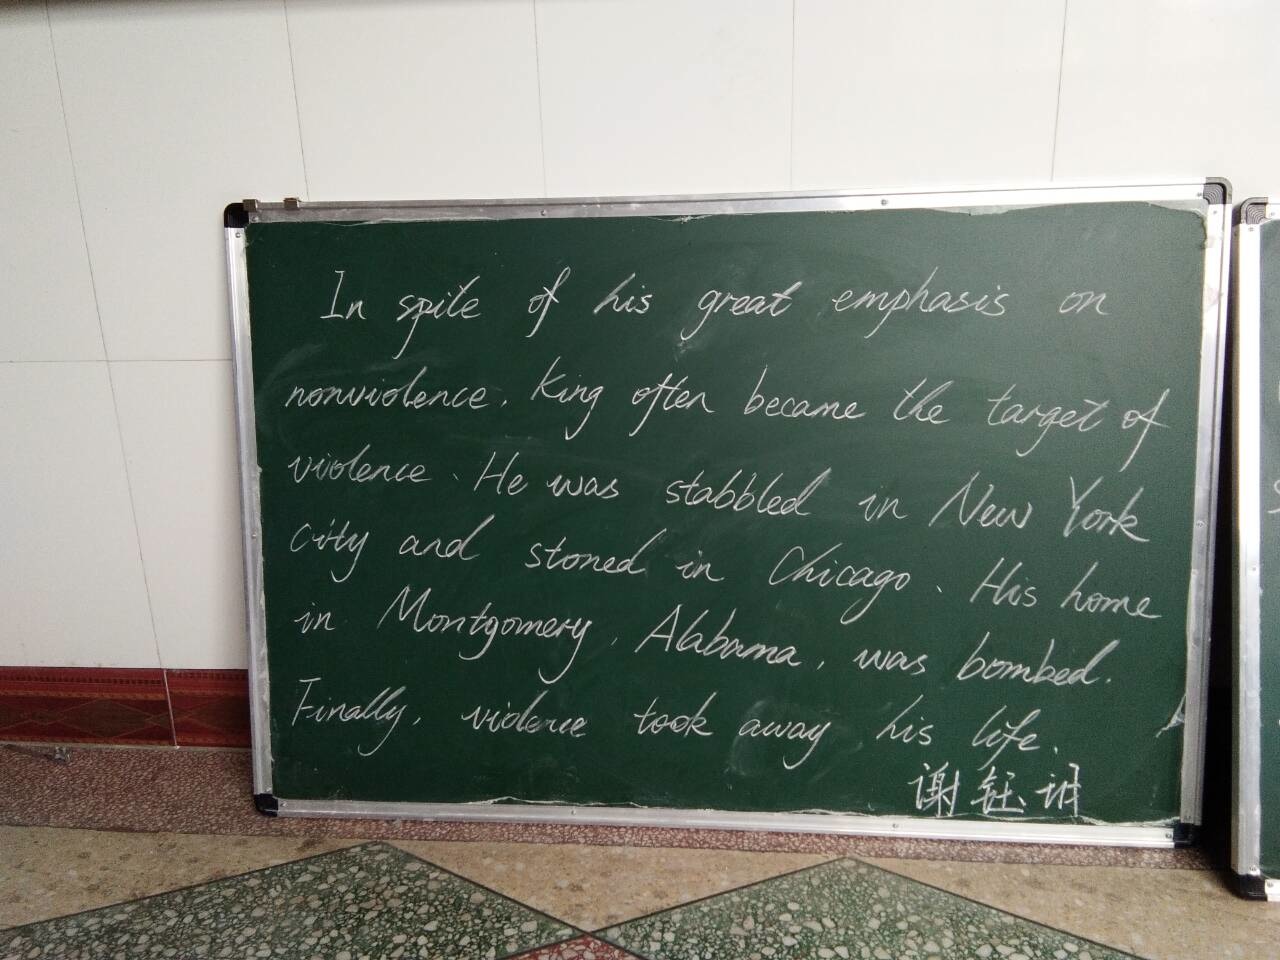 In spite of his great emphasis on
nonviolence, King often became the target of
violence. He was stabbled in New York
city and stoned in Chicago. His home
in Montgomery, Alabama, was bombed.
Finally, violence took away his life.
谢钰